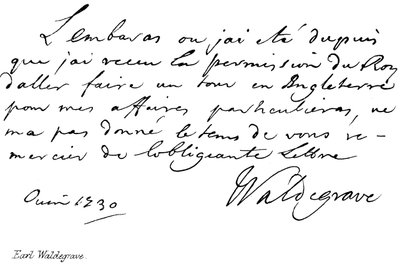 Lembaras ou jai eté dupuis
que jai receu la permission du Roy
daller faire un tour en Engleterre
pour mes affaires particulieres, ne
ma pas donné le tems de vous re-
mercier de lobligeante Lettre
1730
Waldegrave
Earl Waldegrave.